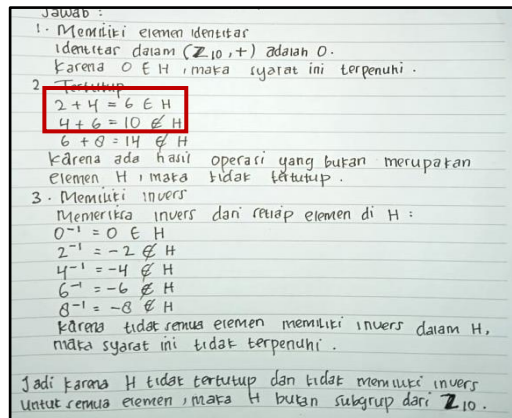 Jawab :
1. Memiliki elemen identitas
Identitas dalam (Z10, +) adalah 0.
Karena 0 ∈ H, maka syarat ini terpenuhi.
2. Tertutup
2 + 4 = 6 ∈ H
4 + 6 = 10 ∉ H
6 + 8 = 14 ∉ H
Karena ada hasil operasi yang bukan merupakan
elemen H, maka tidak tertutup.
3. Memiliki invers
Memeriksa invers dari setiap elemen di H :
0⁻¹ = 0 ∈ H
2⁻¹ = -2 ∉ H
4⁻¹ = -4 ∉ H
6⁻¹ = -6 ∉ H
8⁻¹ = -8 ∉ H
Karena tidak semua elemen memiliki invers dalam H,
maka syarat ini tidak terpenuhi.
Jadi karena H tidak tertutup dan tidak memiliki invers
untuk semua elemen, maka H bukan subgrup dari Z10.